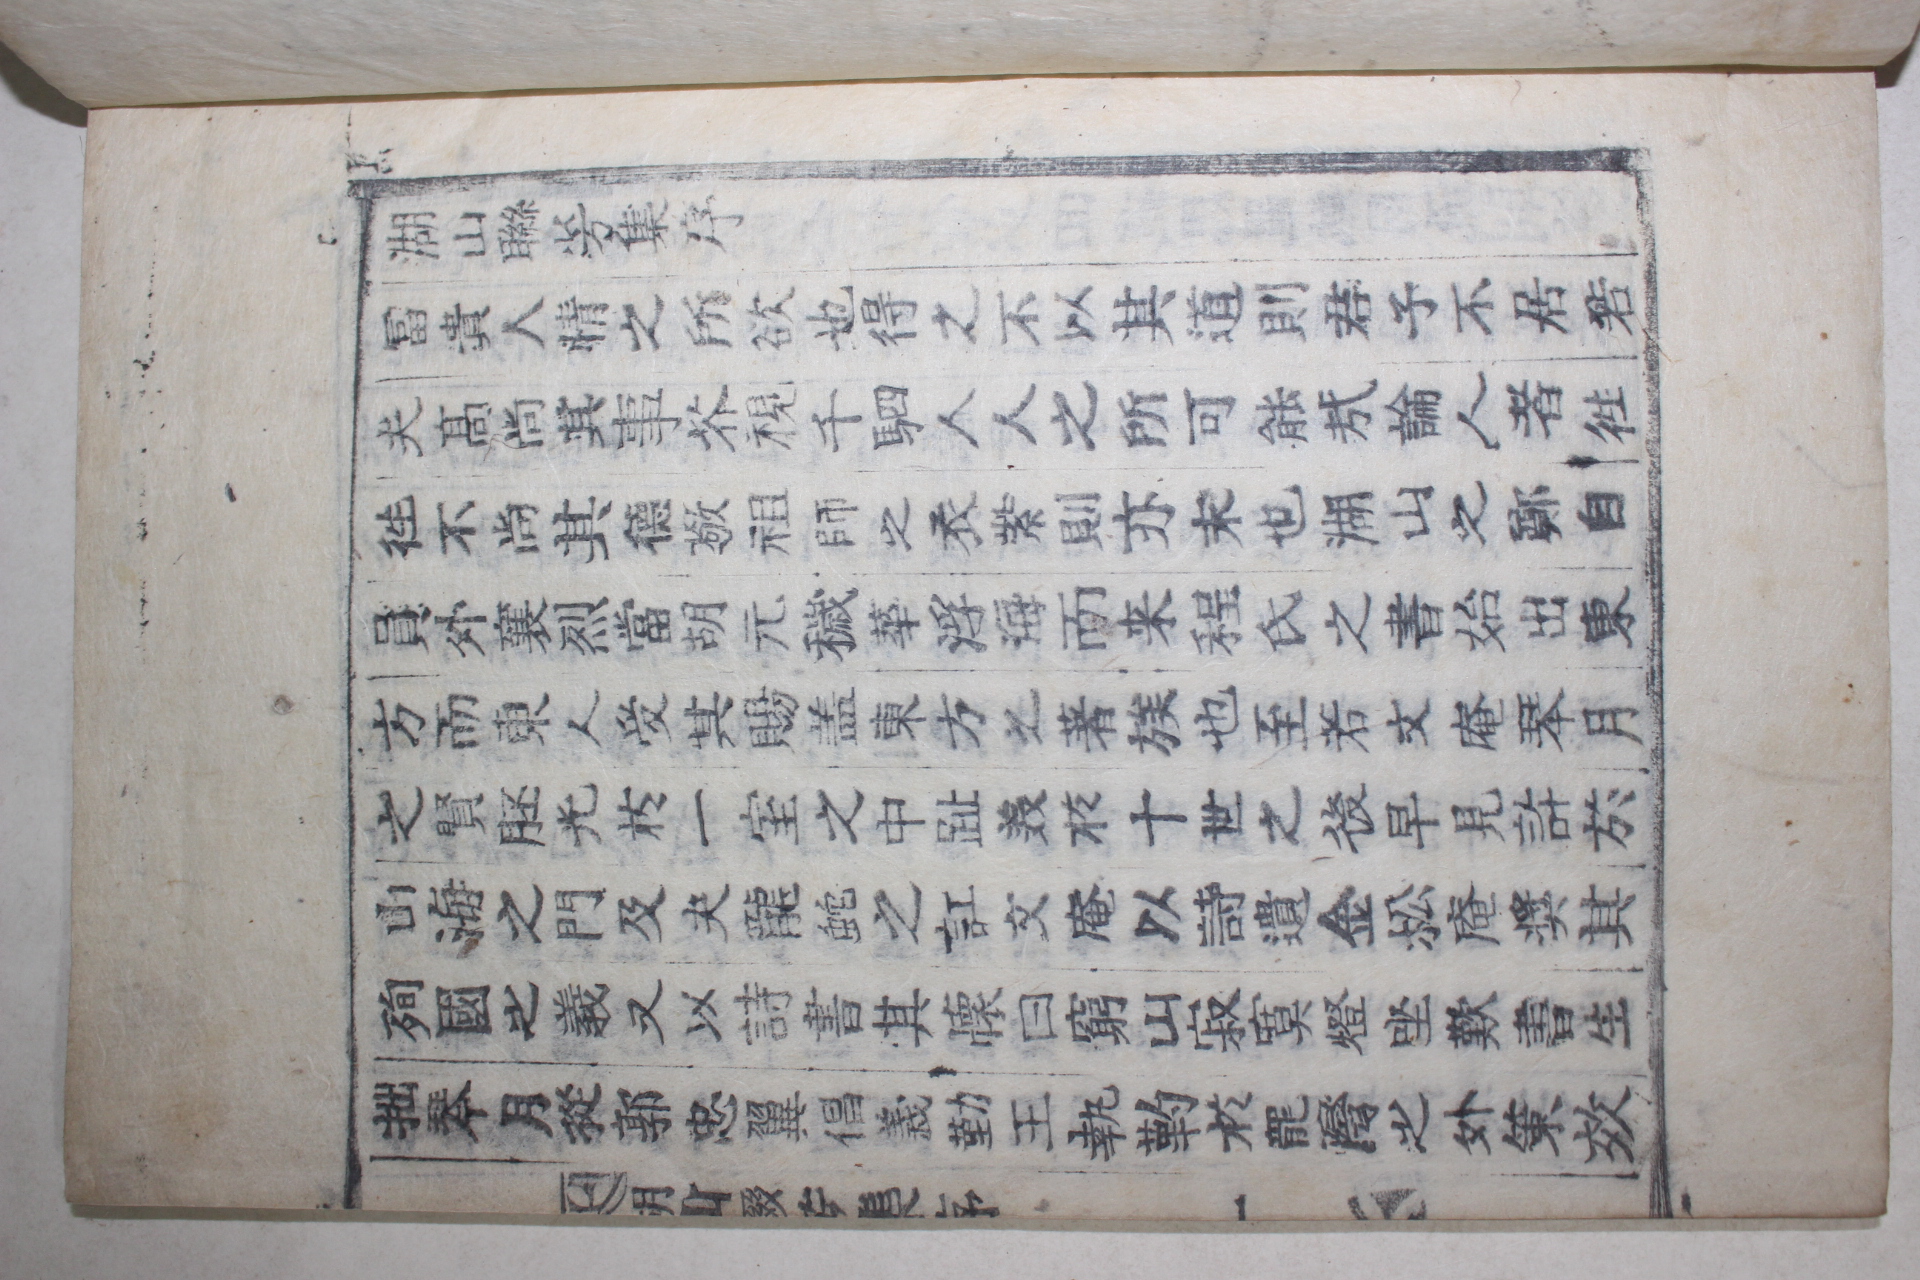 湖山聯芳集序
冨貴人情之所欲也得之不以其道則君子不居若
夫髙尙其事芥視千駟人人之所可能㢤論人者徃
徃不尙其德敬祖師之衣紫則亦末也湖山之鄭自
員外襄烈當胡元穢華浮海而来程氏之書始出東
方而東人受其賜盖東方之著族也至若文庵琴月
之賢胚光於一室之中趾美於十世之後早見許於
山海之門及夫龍蛇之訌文庵以詩遺金松庵奬其
殉國之義又以詩書其懷曰窮山寂寞燈坐歎書生
拙琴月從郭忠翼倡義勤王執靮於龍灣之外策效
湖山聯芳集序
一